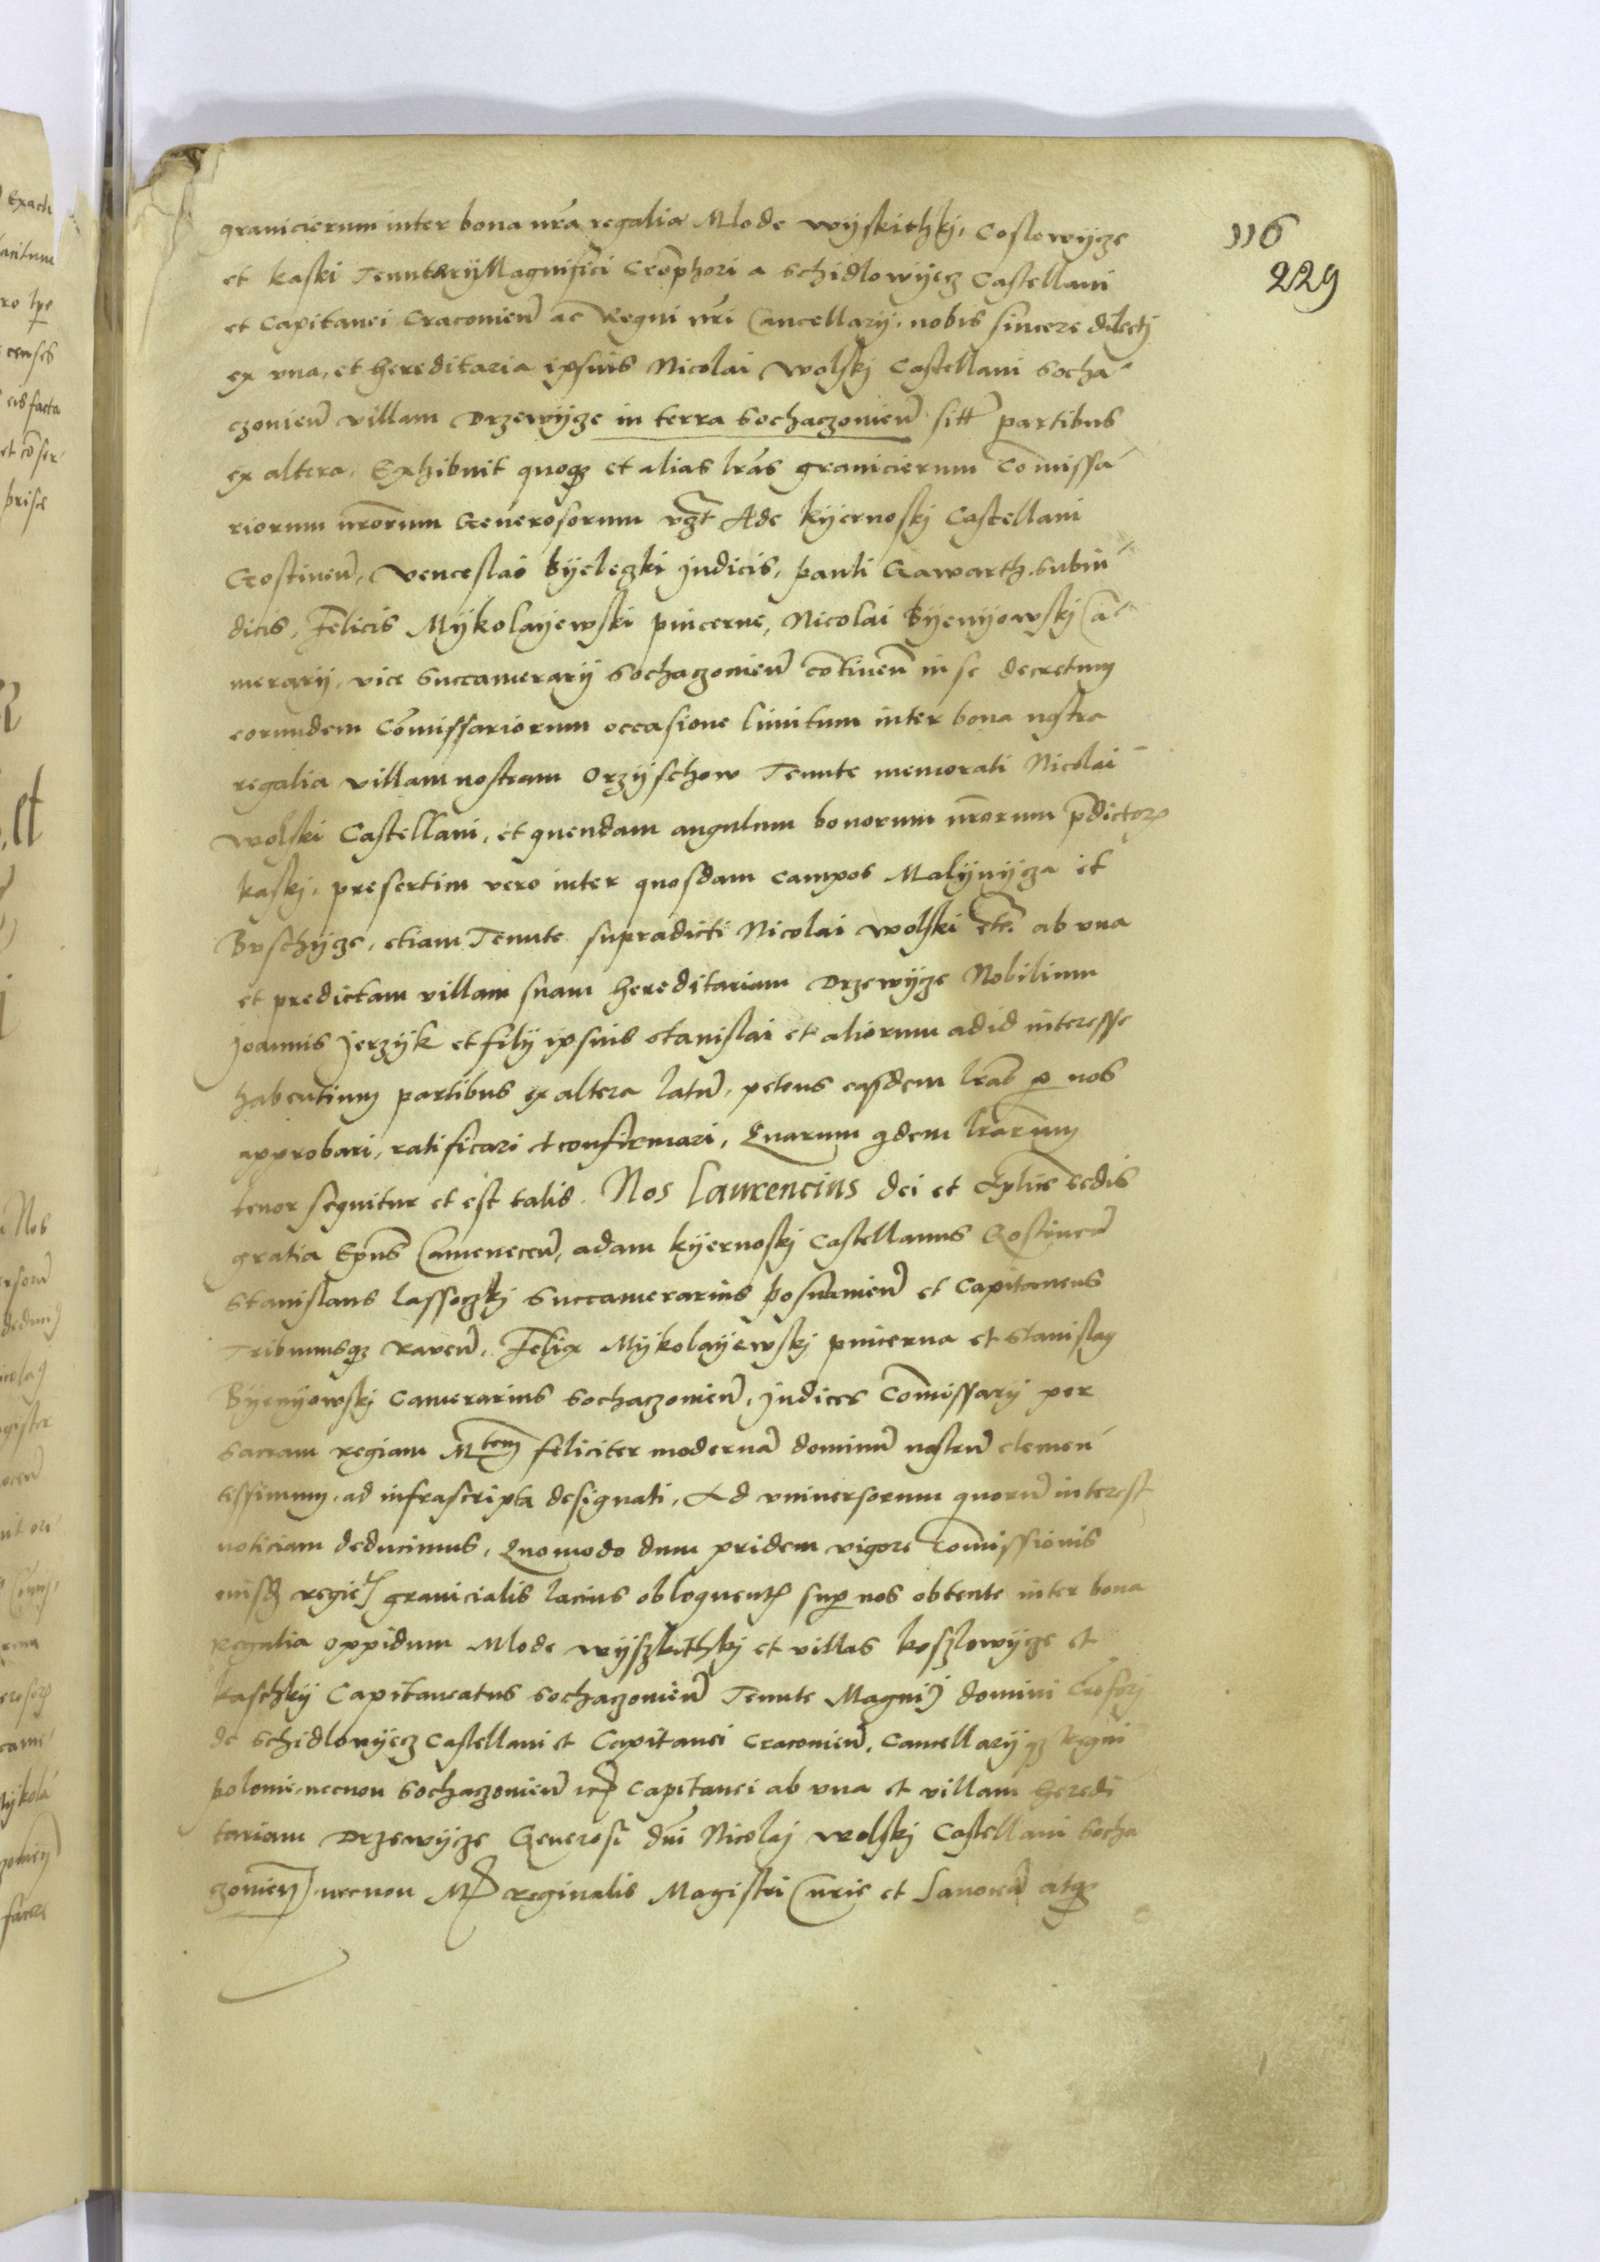 116
229
granicierum inter bona nr̃a regalia Mlode wyskithkj, Coslowÿcze
et kaski Tenutarÿ Magnifici Crõphori a schidlowÿecz Castellani
et Capitanei Cracovien̄ ac Regni nr̃i Cancellarÿ, nobis sincere dilectj
ex vna, et hereditaria ipsius Nicolai wolskj Castellani socha
czovien̄ villam Drzewÿcze in terra sochaczovien̄ sitt̃ partibus
ex altera. Exhibuit quoqʒ et alias lr̃as granicierum Com̃issa
riorum nrõrum Generosorum vʒt Ade kÿernoskj Castellani
Gostinen̄, venceslai Bÿelezki Judicis, pauli Gawarth subiu
dicis, Felicis Mÿkolaÿewski pincerne, Nicolai Bÿenÿowskj Ca
merarÿ, vice succamerarÿ sochaczovien̄ cõtinen̄ in se decretum
eorundem Cõmissariorum occasione limitum inter bona nostra
regalia villam nostram orzÿschow Tenute memorati Nicolai
wolski Castellani, et quendam angulum bonorum nrõrum p̄dictoꝝ
kaskj, presertim vero inter quosdam campos Malÿnÿcza et
Buschÿcze, etiam Tenute supradicti Nicolai wolski etc̃. ab vna
et predictam villam suam hereditariam Drzewÿcze Nobilium
Joannis Jerzÿk et filÿ ipsius stanislai et aliorum ad id interesse
habentium partibus ex altera latas̃, petens easdem lr̃as ꝑ nos
approbari, ratificari et confirmari, Quarum qdem lr̃arum
tenor sequitur et est talis. Nos Laurencius dei et Aplice sedis
gratia Epũs Camenecen̄, adam kÿernoskj Castellanus Gostinen̄
stanislaus lassoczkj succamerarius posnanien̄ et Capitaneus
Tribunusqʒ Raven̄, Felix Mÿkolaÿewskj pincerna et stanislaus
Bÿenÿowskj Camerarius sochaczovien̄, Judices Com̃issarÿ per
sacram regiam M^tem feliciter modernã dominũ nostrũ clemen
tissimum, ad infrascripta designati, Ad vniversorum quorũ interest
noticiam deducimus, Quomodo dum pridem vigore com̃issionis
eiusdʒ regie granicialis lacius obloquentꝭ suꝑ nos obtente inter bona
Regalia oppidum Mlode wÿszkithkj et villas koszlowÿcze et
kaschkÿ Capitaneatus sochaczovien̄ Tenute Magnici domini Crofori
de schidlovÿecz Castellani et Capitanei Cracovien̄, Cancellarÿqʒ Regni
polonie, necnon sochaczovien̄ etc̃ Capitanei ab vna et villam heredi
tariam Drzewÿcze Generosi dñi Nicolaj wolskj Castellani socha
czovien̄, necnon Mtis Reginalis Magistri Curie et Sanocen̄ atqʒ